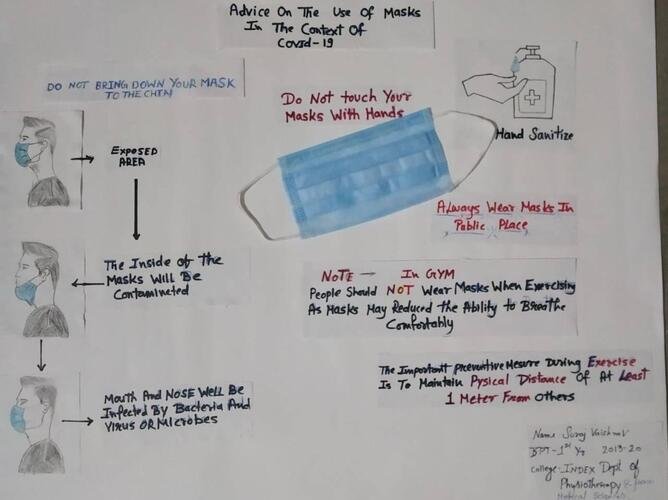 Advice On The Use Of Masks
In The Context Of
Covid-19
DO NOT BRING DOWN YOUR MASK
TO THE CHIN
Do Not touch Your
Masks With Hands
Hand Sanitize
EXPOSED
AREA
Always Wear Masks In
Public Place
The Inside of the
Masks Will Be
Contaminated
NOTE → In GYM
People Should NOT Wear Masks When Exercising
As Masks May Reduced the Ability to Breathe
Comfortably
Mouth And NOSE WELL Be
Infected By Bacteria And
Virus OR Microbes
The Important Preventive Mesure During Exercise
Is To Maintain Pysical Distance Of At Least
1 Meter From Others
Name- Suraj
BPT-1st Yr 2019-20
College-INDEX Dept of
Physiotherapy